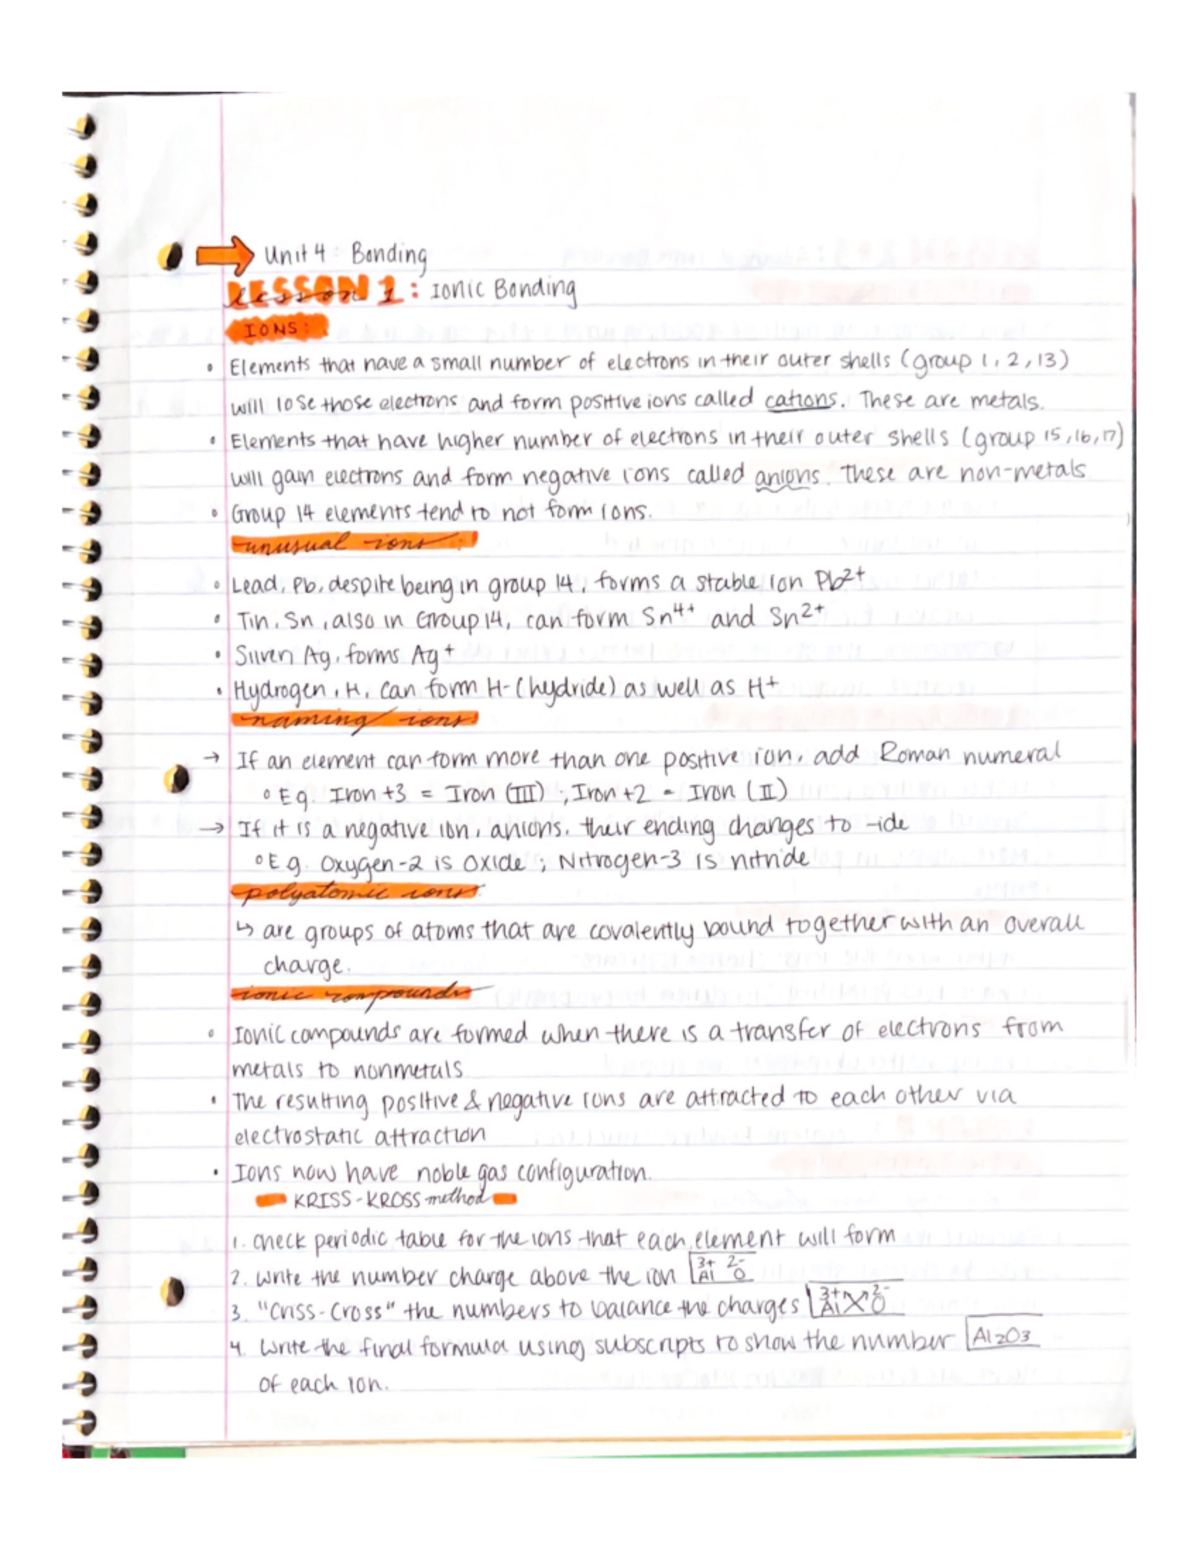 Unit 4: Bonding
LESSON 1: Ionic Bonding
IONS:
• Elements that have a small number of electrons in their outer shells (group 1, 2, 13)
will lose those electrons and form positive ions called cations. These are metals.
• Elements that have higher number of electrons in their outer shells (group 15, 16, 17)
will gain electrons and form negative ions called anions. These are non-metals
• Group 14 elements tend to not form ions.
unusual ions
• Lead, Pb, despite being in group 14, forms a stable ion Pb²⁺
• Tin, Sn, also in Group 14, can form Sn⁴⁺ and Sn²⁺
• Silver, Ag, forms Ag⁺
• Hydrogen, H, can form H- (hydride) as well as H⁺
naming ions
→ If an element can form more than one positive ion, add Roman numeral
° Eg. Iron +3 = Iron (III) ; Iron +2 = Iron (II)
→ If it is a negative ion, anions, their ending changes to -ide
° Eg. Oxygen-2 is oxide ; Nitrogen-3 is nitride
polyatomic ions
↳ are groups of atoms that are covalently bound together with an overall
charge.
ionic compounds
• Ionic compounds are formed when there is a transfer of electrons from
metals to nonmetals
• The resulting positive & negative ions are attracted to each other via
electrostatic attraction
• Ions now have noble gas configuration.
KRISS-KROSS method
1. Check periodic table for the ions that each element will form
2. Write the number charge above the ion Al³⁺ O²⁻
3. "Criss-Cross" the numbers to balance the charges Al³⁺ O²⁻
4. Write the final formula using subscripts to show the number Al₂O₃
of each ion.